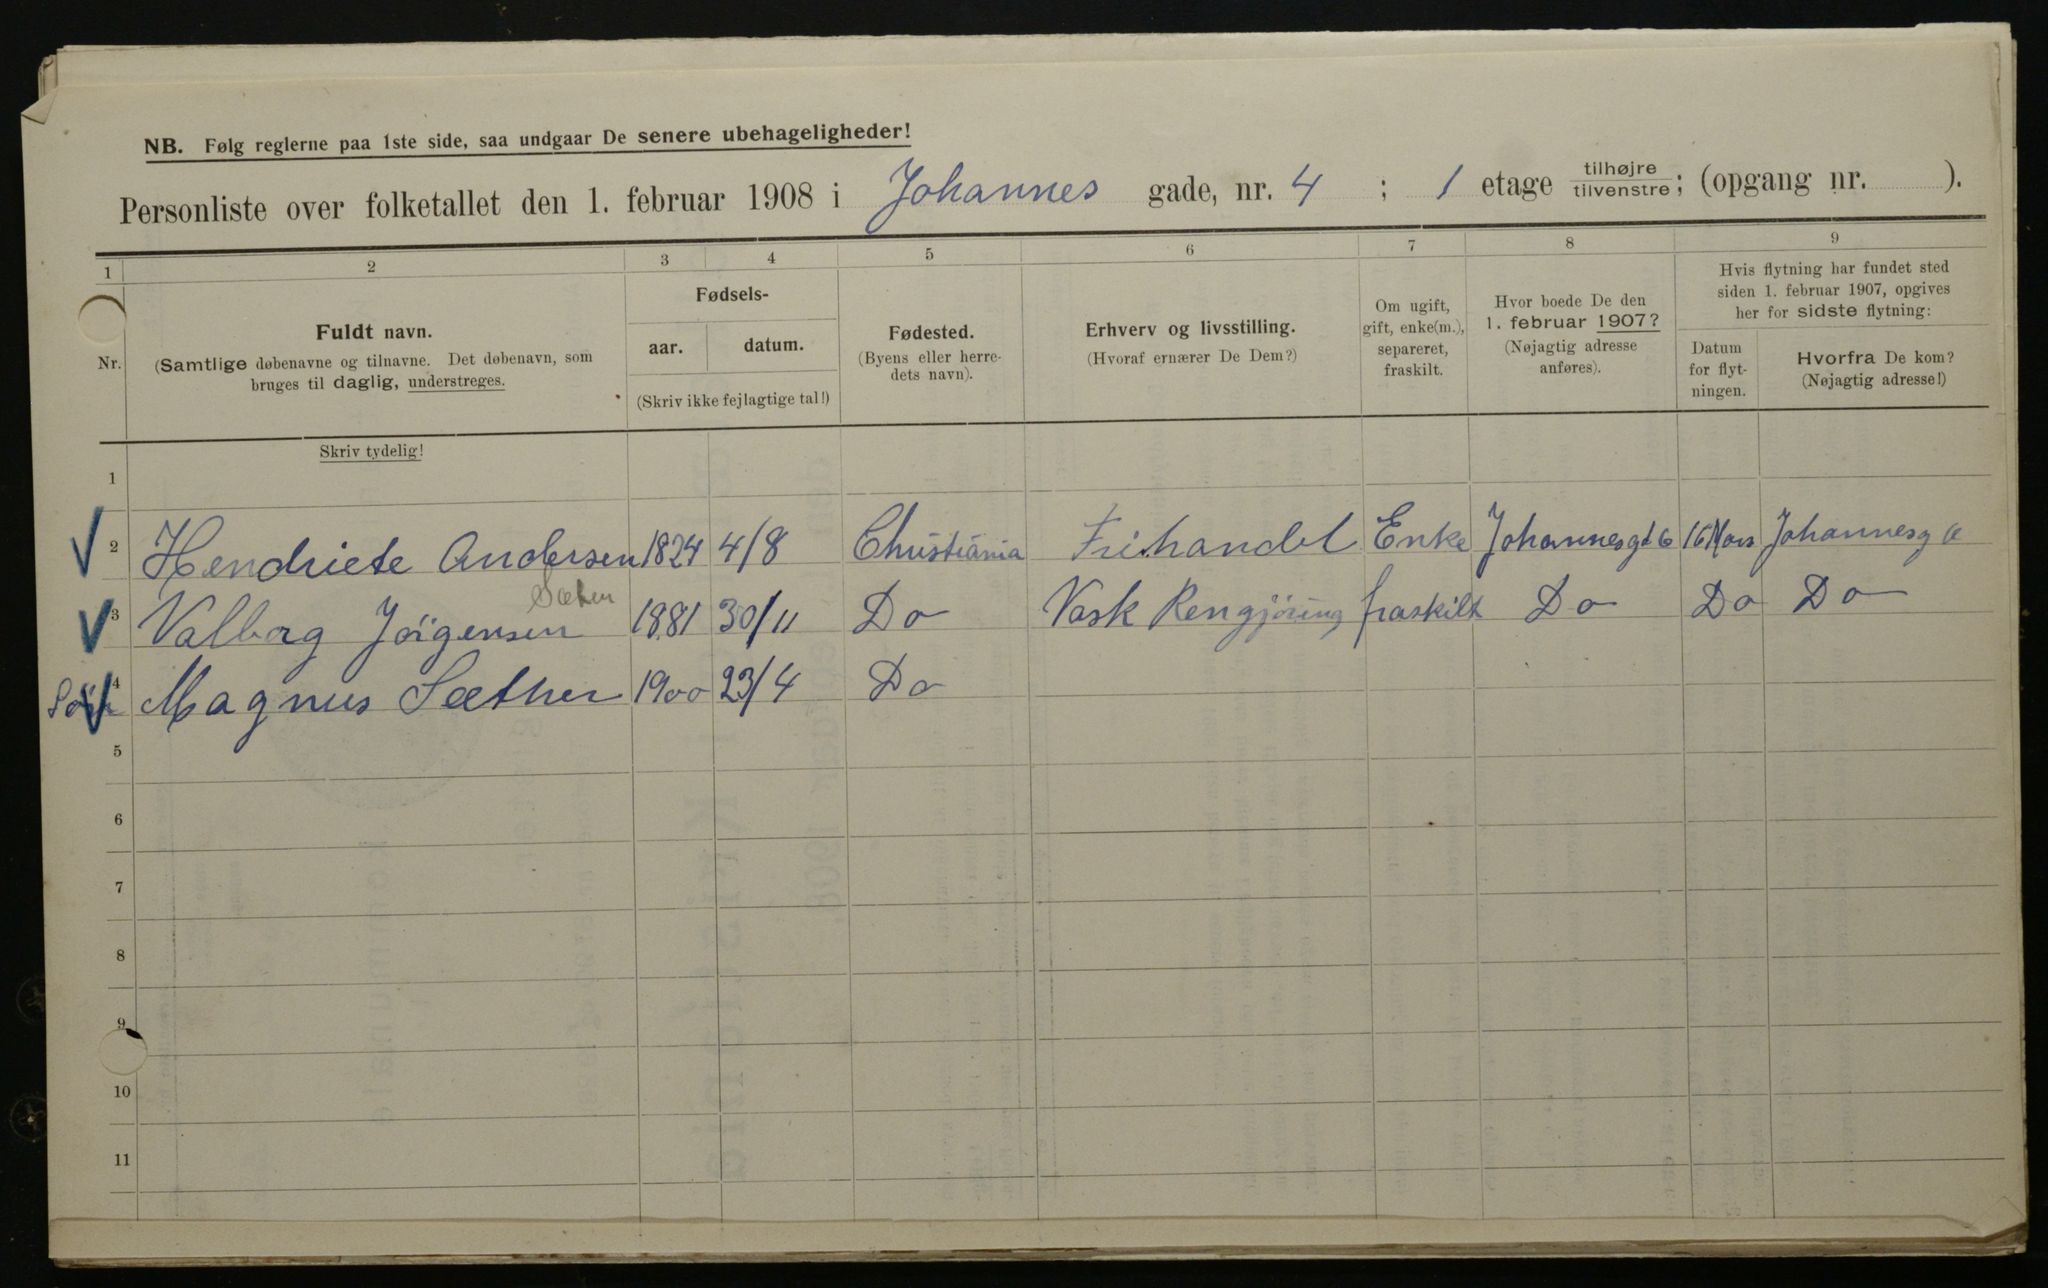 NB. Følg reglerne paa 1ste side, saa undgaar De senere ubehageligheder!
Personliste over folketallet den 1. februar 1908 i Johannes gade, nr. 4 ; 1 etage tilhøjre tilvenstre; (opgang nr. ).
1 2 3 4 5 6 7 8 9
Nr.
Fuldt navn.
(Samtlige døbenavne og tilnavne. Det døbenavn, som
bruges til daglig, understreges.
Skriv tydelig!
Fødsels-
aar. datum.
(Skriv ikke fejlagtige tal!)
Fødested.
(Byens eller herre-
dets navn).
Erhverv og livsstilling.
(Hvoraf ernærer De Dem?)
Om ugift,
gift, enke(m.),
separeret,
fraskilt.
Hvor boede De den
1. februar 1907?
(Nøjagtig adresse
anføres).
Hvis flytning har fundet sted
siden 1. februar 1907, opgives
her for sidste flytning:
Datum
for flyt-
ningen.
Hvorfra De kom?
(Nøjagtig adresse!)
1
2 Hendriete Andersen 1824 4/8 Christiania Frihandel Enke Johannesgd 6 16 Mars Johannesg 6
Sæther
3 Valborg Jørgensen 1881 30/11 Do Vask Rengjöring fraskilt Do Do Do
Søn 4 Magnus Sæther 1900 23/4 Do
5
6
7
8
9
10
11